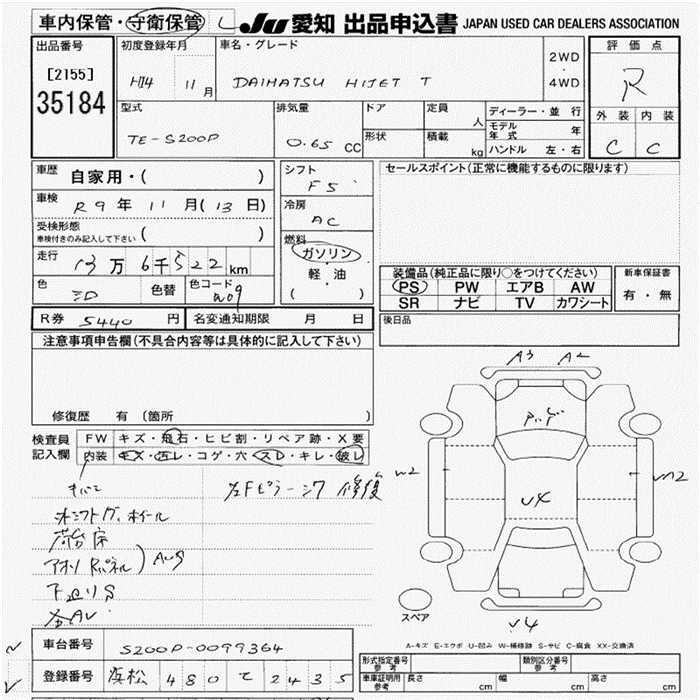 車内保管・守衛保管 JU 愛知 出品申込書 JAPAN USED CAR DEALERS ASSOCIATION
出品番号 初度登録年月 車名・グレード 2WD・4WD 評価点
[2155] H14 11月 DAIHATSU HIJET T R
35184
型式 排気量 ドア 定員 人 ディーラー・並行 外装 内装
TE-S200P 0.65 CC 形状 積載 kg モデル年式 年 C C
ハンドル 左・右
車歴 自家用・( ) シフト F5 セールスポイント(正常に機能するものに限ります)
車検 R9年11月(13日) 冷房 AC
受検形態 ( )
車検付きのみ記入して下さい
燃料
走行 13万6千522km ガソリン 装備品(純正品に限り○をつけてください) 新車保証書
軽・油 PS PW エアB AW 有・無
色 色替 色コード W09 ( ) SR ナビ TV カワシート
R券 5440円 名変通知期限 月 日 後日品
注意事項申告欄(不具合内容等は具体的に記入して下さい)
A3 A2
修復歴 有 (箇所
検査員 FW キズ・飛石・ヒビ割・リペア跡・X要
記入欄 内装 キズ・汚レ・コゲ・穴・スレ・キレ・破レ
W2 W2
左Fピラーシワ 修復
U4
荷台床
アオリ AUS
下廻りS
スペア U4
A-キズ E-エクボ U-凹み W-補修跡 S-サビ C-腐食 XX-交換済
車台番号 S200P-0099364
型式指定番号 参考 類別区分番号 参考
登録番号 浜松 480 て 2435
車庫証明用 参考 長さ cm 幅 cm 高さ cm